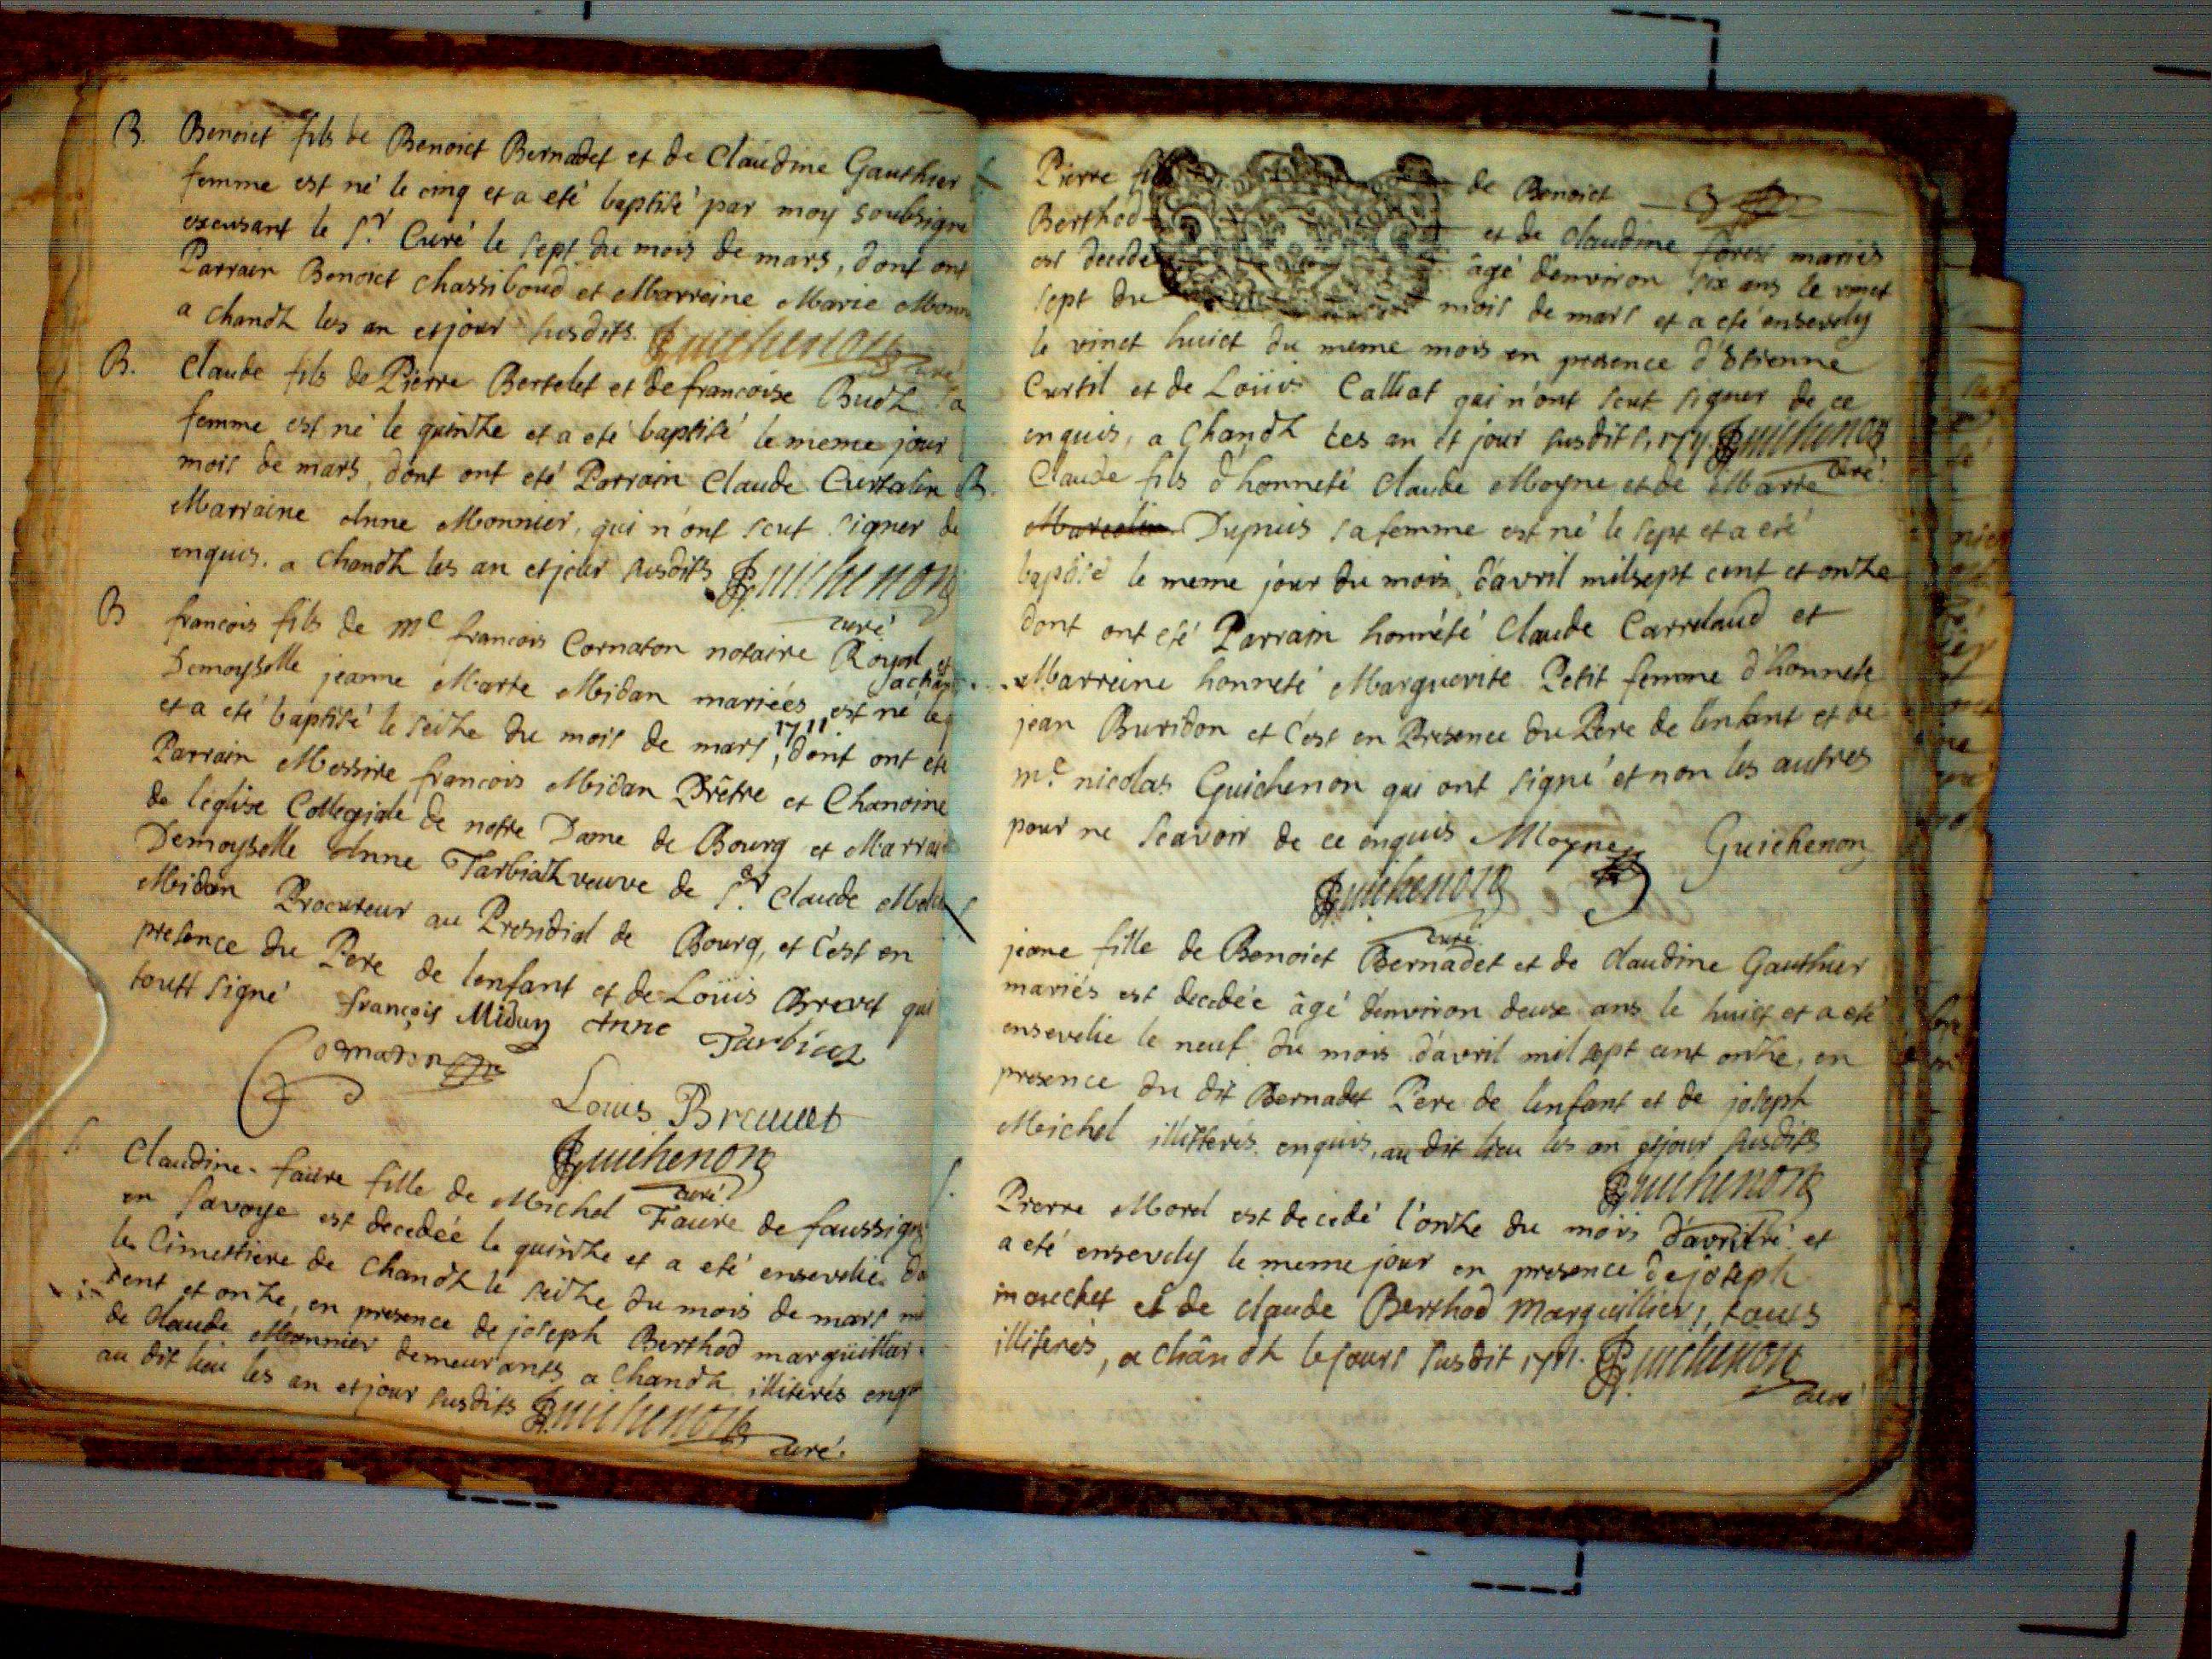 B. Benoict fils de Benoict Bernadet et de Claudine Gauthier
femme est né le cinq et a eté baptisé par moy soubsigné
excusant le Sr. Curé le sept du mois de mars, dont ont
Parrain Benoict Chassiboud et Marreine Marie Monn
a Chandz les an et jour susdits. Guichenon curé
B. Claude fils de Pierre Bertelet et de francoise Budz sa
femme est né le quinze et a eté baptisé le meme jour
mois de mars, dont ont eté Parrain Claude Curtalin
Marraine Anne Monnier, qui n'ont sceut signer de
enquis. a Chandz les an et jour susdits Guichenon
curé
B francois fils de Me francois Cornaton notaire Royal et
Demoyselle jeanne Marie Midan mariées est né le
et a eté baptisé le seize du mois de mars, 1711 dont ont eté
Parrain Messire francois Midan Prêtre et Chanoine
de léglise Collegiale de notre Dame de Bourg et Marrai
Demoyselle Anne Tarbiaz veuve de Sr. Claude
Midan Procureur au Presidial de Bourg, et c'est en
presence du Pere de lenfant et de Loüis Brevet qui
touts signé françois Midan Anne Tarbiaz
Cornaton
Louis Brauet
Guichenon
curé
S. Claudine faure fille de Michel Faure de faussign
en Savoye est decedée le quinze et a eté ensevelie da
le Cimettiere de Chandz le seize du mois de mars mi
cent et onze, en presence de joseph Berthod marguillier
de Claude Monnier demeurants a Chandz illiterés enq
au dit lieu les an et jour susdits Guichenon
curé.
Pierre fils de Benoict
Berthod et de Claudine forest mariés
est decedé âgé d'environ six ans le vinct
sept du mois de mars et a eté ensevely
le vinct huict du meme mois en presence d'Etienne
Curtil et de Loüis Calliat qui n'ont sceut signer de ce
enquis, a Chandz les an et jour susdits, 1711. Guichenon
curé
B. Claude fils d'honneté Claude Moyne et de Marie
Marcelin Dupuis sa femme est né le sept et a eté
baptisé le meme jour du mois d'avril mil sept cent et onze
dont ont eté Parrain honneté Claude Carrelaud et
Marreine honneté Marguerite Petit femme d'honnete
jean Buridon et c'est en Presence du Pere de l'enfant et de
me. nicolas Guichenon qui ont signé et non les autres
pour ne scavoir de ce enquis Moyne Guichenon
Guichenon
curé
S. jeane fille de Benoict Bernadet et de Claudine Gauthier
mariés est decedée âgé d'environ deux ans le huict et a eté
ensevelie le neuf du mois d'avril mil sept cent onze, en
presence du dit Bernadet Pere de l'enfant et de joseph
Michel illitterés enquis, au dit lieu les an et jour susdits
Guichenon
curé
S. Pierre Morel est decedé l'onze du mois d'avril et
a eté ensevely le meme jour en presence de joseph
mouchet et de claude Berthod Marguilliers, touts
illiterés, a chândz le jours susdit 1711. Guichenon
curé